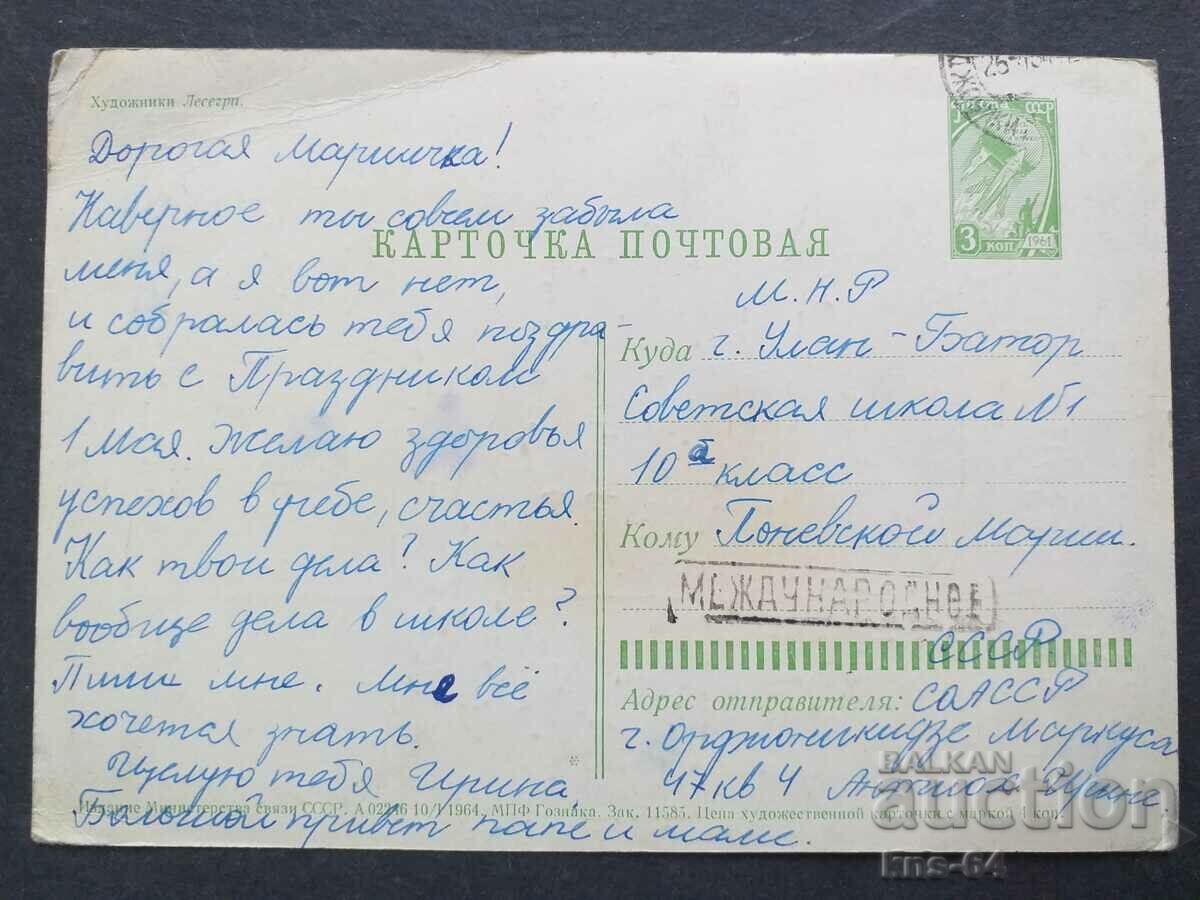 Художники Лесегри.
Дорогая Маришчка!
Наверное ты совсем забыла
меня, а я вот нет,
и собралась тебя поздра-
вить с Праздником
1 мая. Желаю здоровья
успехов в учебе, счастья.
Как твои дела? Как
вообще дела в школе?
Пиши мне. Мне всё
хочется знать.
Целую тебя Ирина,
Большой привет папе и маме.
КАРТОЧКА ПОЧТОВАЯ
ПОЧТА СССР
3 КОП
1961
М.Н.Р
Куда г. Улан-Батор
Советская школа №1
10 а класс
Кому Поневской Марии.
МЕЖДУНАРОДНОЕ
СССР
Адрес отправителя: СОАССР
г. Орджоникидзе Маркуса
47 кв 4 Ирине.
Издание Министерства связи СССР. А 02246 10/I 1964. МПФ Гознака. Зак. 11585. Цена художественной карточки с маркой 4 коп.
BALKAN
auction
kns-64